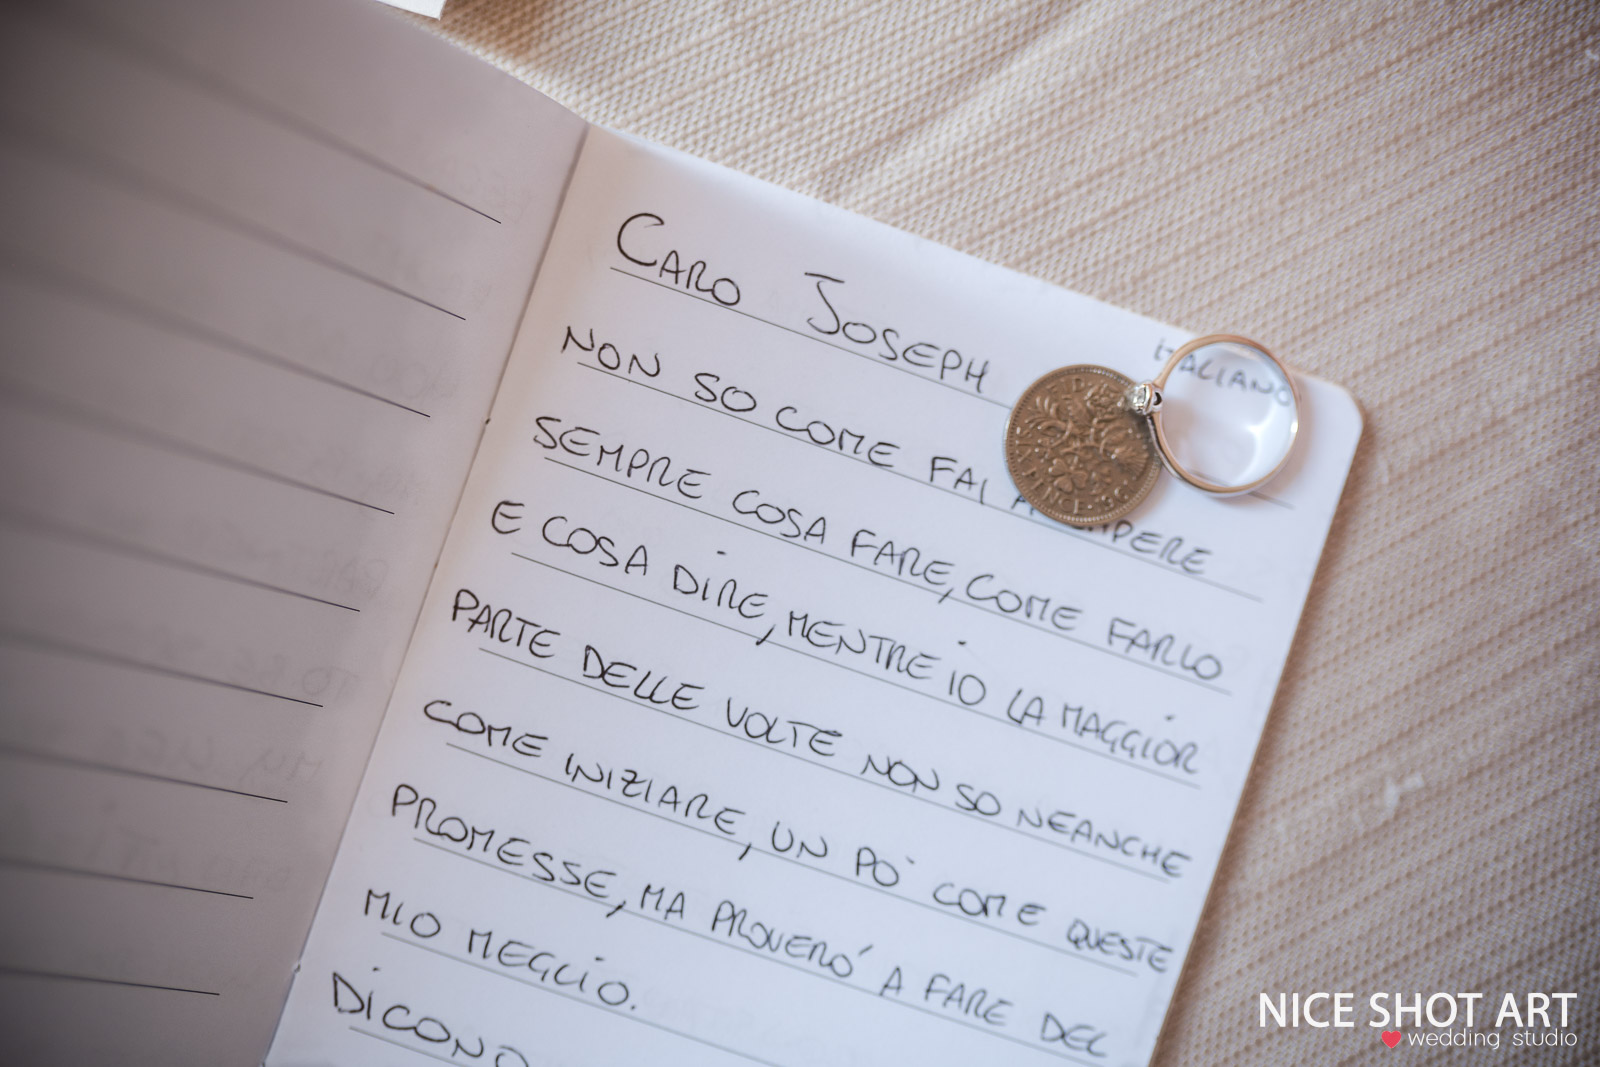 CARO JOSEPH
ITALIANO
NON SO COME FAI A SAPERE
SEMPRE COSA FARE, COME FARLO
E COSA DIRE, MENTRE IO LA MAGGIOR
PARTE DELLE VOLTE NON SO NEANCHE
COME INIZIARE, UN PO' COME QUESTE
PROMESSE, MA PROVERÓ A FARE DEL
MIO MEGLIO.
DICONO
NICE SHOT ART
wedding studio